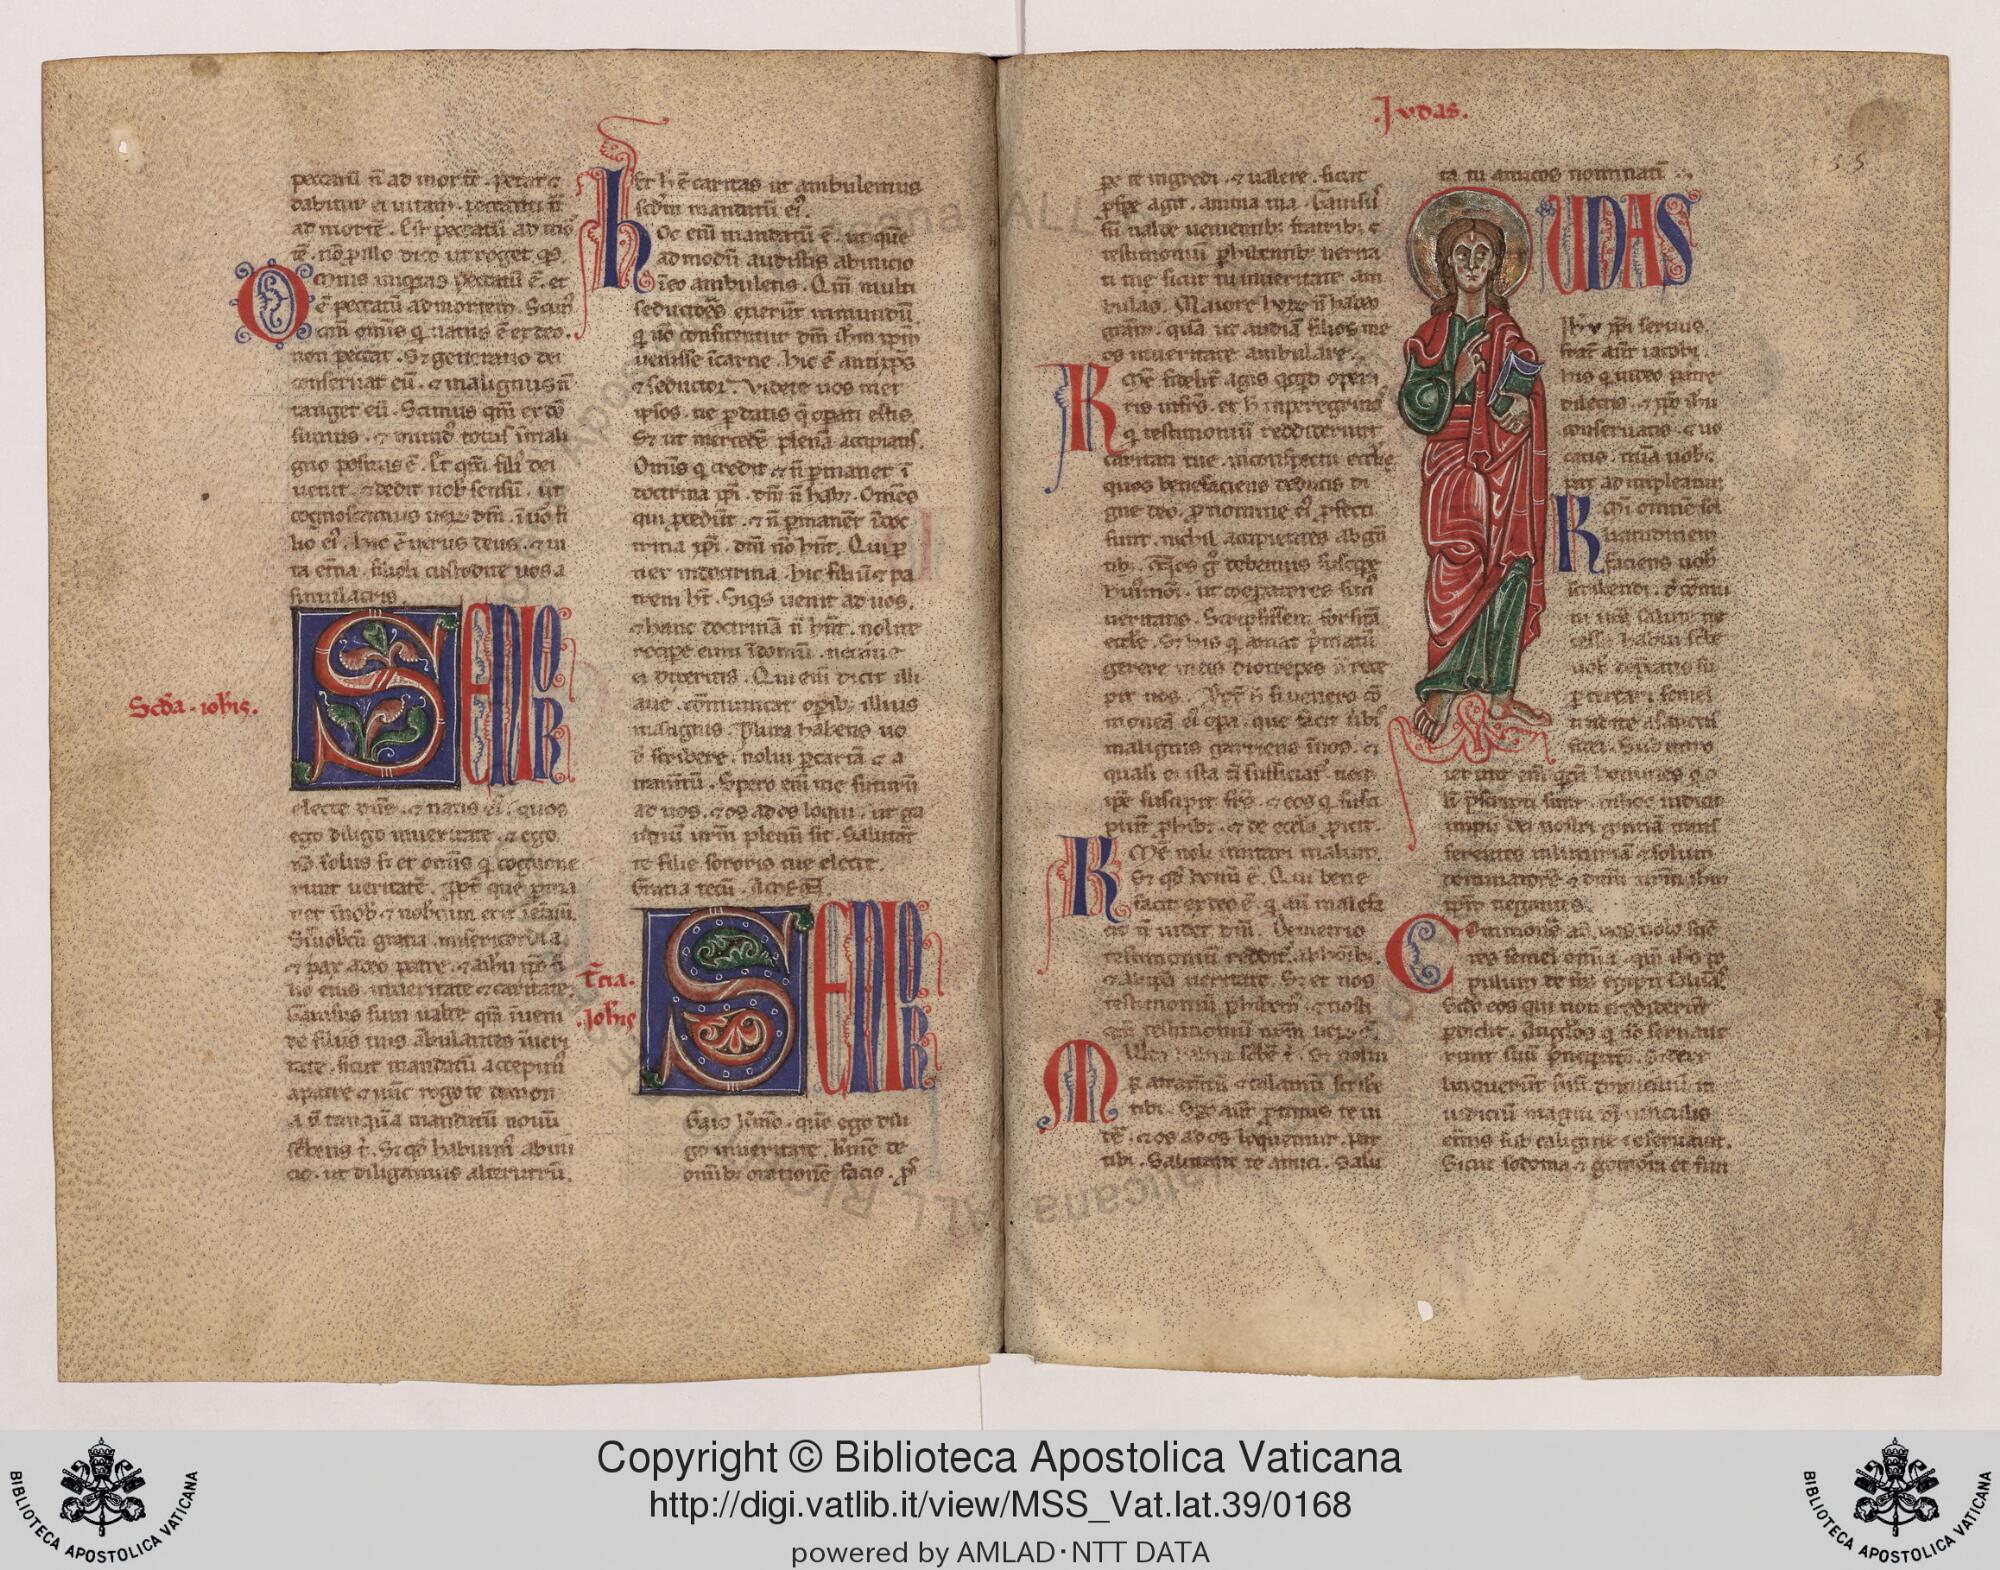 peccatū n̄ ad mortē. petat ⁊
dabitur ei uitam. peccanti n̄
ad mortē. Est peccatū ad mor
tē. nō p illo dico ut roget q̄s.
Omnis iniq̇tas peccatū ē. et
ē peccatū ad mortem. Scim᷒
qm̄ omīs q̇ natus ē ex deo.
non peccat. Sȝ generatio dei
conseruat eū. ⁊ malignus n̄
tanget eū. Scimus qm̄ ex dō
sumus. ⁊ mund᷒ totus ī mali
gno positus ē. Et qm̄ fili᷒ dei
uenit. ⁊ dedit nob̄ sensū. ut
cognoscamus uerū dm̄. ⁊ uō fi
lio ei᷒. hic ē uerus deus. ⁊ ui
ta etīna. filioli custodite uos a
simulacris.
Scd̄a . ioh̄is.
SENIOR
electe dn̄e. ⁊ natis ei᷒. quos
ego diligo in ueritate. ⁊ ego
nō solus sȝ et omīs q̇ cognoue
runt ueritatē. ꝓpt̄ que ꝑma
net ī nob̄. ⁊ nobcum erit ī et̄nū.
Sit uobcū gratia. misericordia.
⁊ pax a deo patre. ⁊ a ih̄u xp̄o fi
lio eius in ueritate ⁊ caritate.
Gauisus sum ualde qm̄ ī ueni
de filiis tuis ābulantes ī ueri
tate. sicut mandatū accepim᷒
a patre ⁊ nūc rogo te domina
n̄ tanquā mandatū nouū
sc̄bens t̄. Sȝ qd̄ habuim᷒ ab ini
cio. ut diligamus alterutrū.
Et h̄ ē caritas ut ambulemus
scd̄m mandatū ei᷒.
Hoc enī mandatū ē. ut quē
admodū audistis ab inicio
ī eo ambuletis. Qm̄ multi
seductores exierūt in mundū.
q̇ nō confitentur dm̄ ih̄m xp̄m
uenisse ī carne. hic ē antixp̄s
⁊ seductor. Videte uos met
ipsos. ne ꝑdatis q̄ opati estis.
Sȝ ut mercedē plenā accipiatis.
Omīs q̇ credit ⁊ n̄ ꝑmanet ī
doctrina xp̄i. dm̄ n̄ habȝ. Omēs
qui ꝓcedūt. ⁊ n̄ ꝑmanēt ī doc
trina xp̄i. dm̄ nō hn̄t. Qui ꝑ
net in doctrina. hic filiū ⁊ pa
trem ht̄. Siq̇s uenit ad uos.
⁊ hanc doctrinā n̄ hn̄t. nolite
recipe eum ī domū. nec aue
ei dixeritis. Qui enī dicit illi
aue. cōmunicat opib᷒ illius
malignis. Plura habens uo
b̄ scribere. nolui ꝑ cartā ⁊ a
tramtū. Spero enī me futurū
ad uos. ⁊ os ad os loqui. ut ga
udiū ur̄m plenū sit. Salutāt
te filie sororis tue electe.
Gratia tecū. Amen.
T̄cia.
.Joh̄is
SENIOR
Gaio kmō. que ego dili
go in ueritate. kmē de
omīb᷒ orationē facio. ꝓs
.Judas.
pe te ingredi. ⁊ ualere. sicut
ꝓspe agit. anima tua. Gauisus
sū ualde uenientib᷒ fratrib᷒ ⁊
testimoniū ꝑhibentib᷒ uerita
ti tue sicut tu in ueritate am
bulas. Maiorē horū n̄ habeo
grām. quā ut audiā filios me
os in ueritate ambulare.
Kmē fidelit̄ agis q̇cq̇d opera
ris in frīs. et h̄ in peregrinos
q̇ testimoniū reddiderunt
caritati tue. in conspectu eccl̄e
quos benefaciens deducis di
gne deo. ꝓ nomine ei᷒ ꝓfecti
sunt. nichil accipientes ab gen
tib᷒. Nos g̊ debemus suscipe
hui᷒modi. ut cooperatores sim᷒
ueritatis. Scripsissem forsitā
eccl̄e. Sȝ his q̇ amat p̄matū
gerere in eis diotrepes n̄ reci
pit nos. Ppt̄ h̄ si uenero cō
moneā ei᷒ opa. que facit uerbis
malignis garriens ī nos. ⁊
quasi ei ista n̄ sufficiāt. nec
ipē suscipit frēs. ⁊ eos q̇ susci
piūt ꝓhibȝ. ⁊ de eccl̄a ꝓicit.
Kmē noli imitari malum.
Sȝ qd̄ bonū ē. Qui bene
facit ex deo ē. q̇ aut̄ male fa
cit n̄ uidet dm̄. Demetrio
testimoniū reddit᷒ ab hoīb᷒.
⁊ ab ipsa ueritate. Sȝ et nos
testimoniū ꝑhibem᷒. ⁊ nosti
qm̄ testimoniū nr̄m uerū ē.
Multa habui sc̄bē t̄. Sȝ nolui
ꝑ atramtū ⁊ calamū scribe
tibi. Spo aut̄ ꝓtinus te ui
dē. ⁊ os ad os loquemur. pax
tibi. Salutant te amici. Salu
ta tu amicos nominatī.
JUDAS
Ih̄u xp̄i seruus.
frat̄ aut̄ iacobi.
his q̇ in deo patre
dilectis. ⁊ xp̄o ih̄u
conseruatis. ⁊ uo
catis. m̄ia uob̄.
pax adimpleatur
Kmi omnē sol
licitudinem
faciens uob̄
scribendi. d̄ cōmu
ni ur̄a salute ne
cesse habui sc̄bē
uob̄ deprecans su
ꝑ certari semel
tradite a sanctis
fidei. Sub intro
ierunt enī q̇dā homines q̇ o
lī p̄scripti sunt. in hoc iudiciū
impii dei nostri gratiā trans
ferentes in luxuriā ⁊ solum
dominatorē ⁊ dnm̄ nr̄m ih̄m
xp̄m negantes.
Commonē aut̄ uos uolo sciē
tes semel omīa. qm̄ ih̄s po
pulum de t̄ra egipti saluās.
Scd̄o eos qui non crediderūt
ꝑdidit. Anglōs q̇ nō seruaue
runt suū p̄ncipatū. Sȝ dere
linquerūt suū domiciliū in
iudiciū magni di᷒ uinculis
et̄nis sub caligine reseruauit.
Sicut sodoma ⁊ gomorra et fini
Copyright © Biblioteca Apostolica Vaticana
http://digi.vatlib.it/view/MSS_Vat.lat.39/0168
powered by AMLAD·NTT DATA
BIBLIOTECA APOSTOLICA VATICANA
BIBLIOTECA APOSTOLICA VATICANA